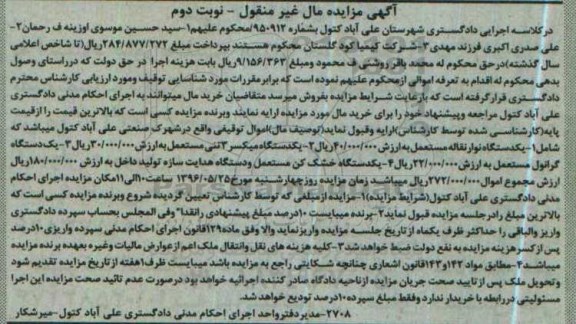 آگهی مزایده مال غیر منقول - نوبت دوم
در کلاسه اجرایی دادگستری شهرستان علی آباد کتول بشماره ۹۵۰۹۱۲/محکوم علیهم۱-سید حسین موسوی اوزینه ف رحمان۲-
علی صدری اکبری فرزند مهدی۳-شرکت کیمیا کود گلستان محکوم هستند بپرداخت مبلغ ۲۸۴/۸۷۷/۲۷۲ریال(تا شاخص اعلامی
سال گذشته)درحق محکوم له محمد باقر روشنی ف محمود ومبلغ ۹/۱۵۶/۳۶۳ریال بابت هزینه اجرا در حق دولت که درراستای وصول
بدهی محکوم له اقدام به تعرفه اموالی ازمحکوم علیهم نموده است که برابر مقررات مورد شناسایی توقیف ومورد ارزیابی کارشناس محترم
دادگستری قرار گرفته است که بارعایت شرایط مزایده بفروش میرسد متقاضیان خرید مال میتوانند به اجرای احکام مدنی دادگستری
علی آباد کتول مراجعه وپیشنهاد خود را برای خرید مال مورد مزایده ارایه نمایند وبرنده مزایده کسی است که بالاترین قیمت را ازقیمت
پایه(کارشناسی شده توسط کارشناس)ارایه وقبول نماید(توصیف مال)اموال توقیفی واقع درشهرک صنعتی علی آباد کتول میباشد که
شامل۱-یکدستگاه نوار نقاله مستعمل به ارزش ۴۰/۰۰۰/۰۰۰ریال۲-یکدستگاه میکسر۳تنی مستعمل به ارزش ۳۰/۰۰۰/۰۰۰ریال۳-یک دستگاه
گرانول مستعمل به ارزش ۲۲/۰۰۰/۰۰۰ ریال۴-یکدستگاه خشک کن مستعمل ودستگاه هدایت سازه تولید داخل به ارزش ۱۸۰/۰۰۰/۰۰۰ریال
ارزش مجموع اموال ۲۷۲/۰۰۰/۰۰۰ریال میباشد زمان مزایده روزچهارشنبه مورخ۱۳۹۶/۰۵/۲۵ ساعت۱۰الی۱۱مکان مزایده اجرای احکام
مدنی دادگستری علی آباد کتول(شرایط مزایده)۱-مزایده ازمبلغی که توسط کارشناس تعیین گردیده شروع وبرنده مزایده کسی است که
بالاترین مبلغ رادرجلسه مزایده قبول نماید۲-برنده میبایست ۱۰درصد مبلغ پیشنهادی رانقدا"وفی المجلس بحساب سپرده دادگستری
واریز والباقی را حداکثر ظرف یکماه از تاریخ جلسه مزایده واریزنماید والا وفق ماده۱۲۹قانون اجرای احکام مدنی سپرده واریزی۱۰درصد
پس از کسر هزینه مزایده به نفع دولت ضبط خواهد شد۳-کلیه هزینه های نقل وانتقال ملک اعم ازعوارض مالیات وغیره بعهده برنده مزایده
میباشد۴-مطابق مواد ۱۴۲و۱۴۳قانون اشعاری چنانچه شکایتی راجع به مزایده باشد میبایست ظرف۱هفته از تاریخ مزایده تقدیم شود
وتحویل ملک پس از تایید صحت جریان مزایده ازناحیه دادگاه صادر کننده اجرائیه خواهد بود درصورت عدم تائید صحت مزایده این اجرا
مسئولیتی دررابطه با خریدار ندارد وفقط مبلغ سپرده۱۰درصد تودیع خواهد شد.
۲۷۰۸-مدیر دفترواحد اجرای احکام مدنی دادگستری علی آباد کتول-میرشکار